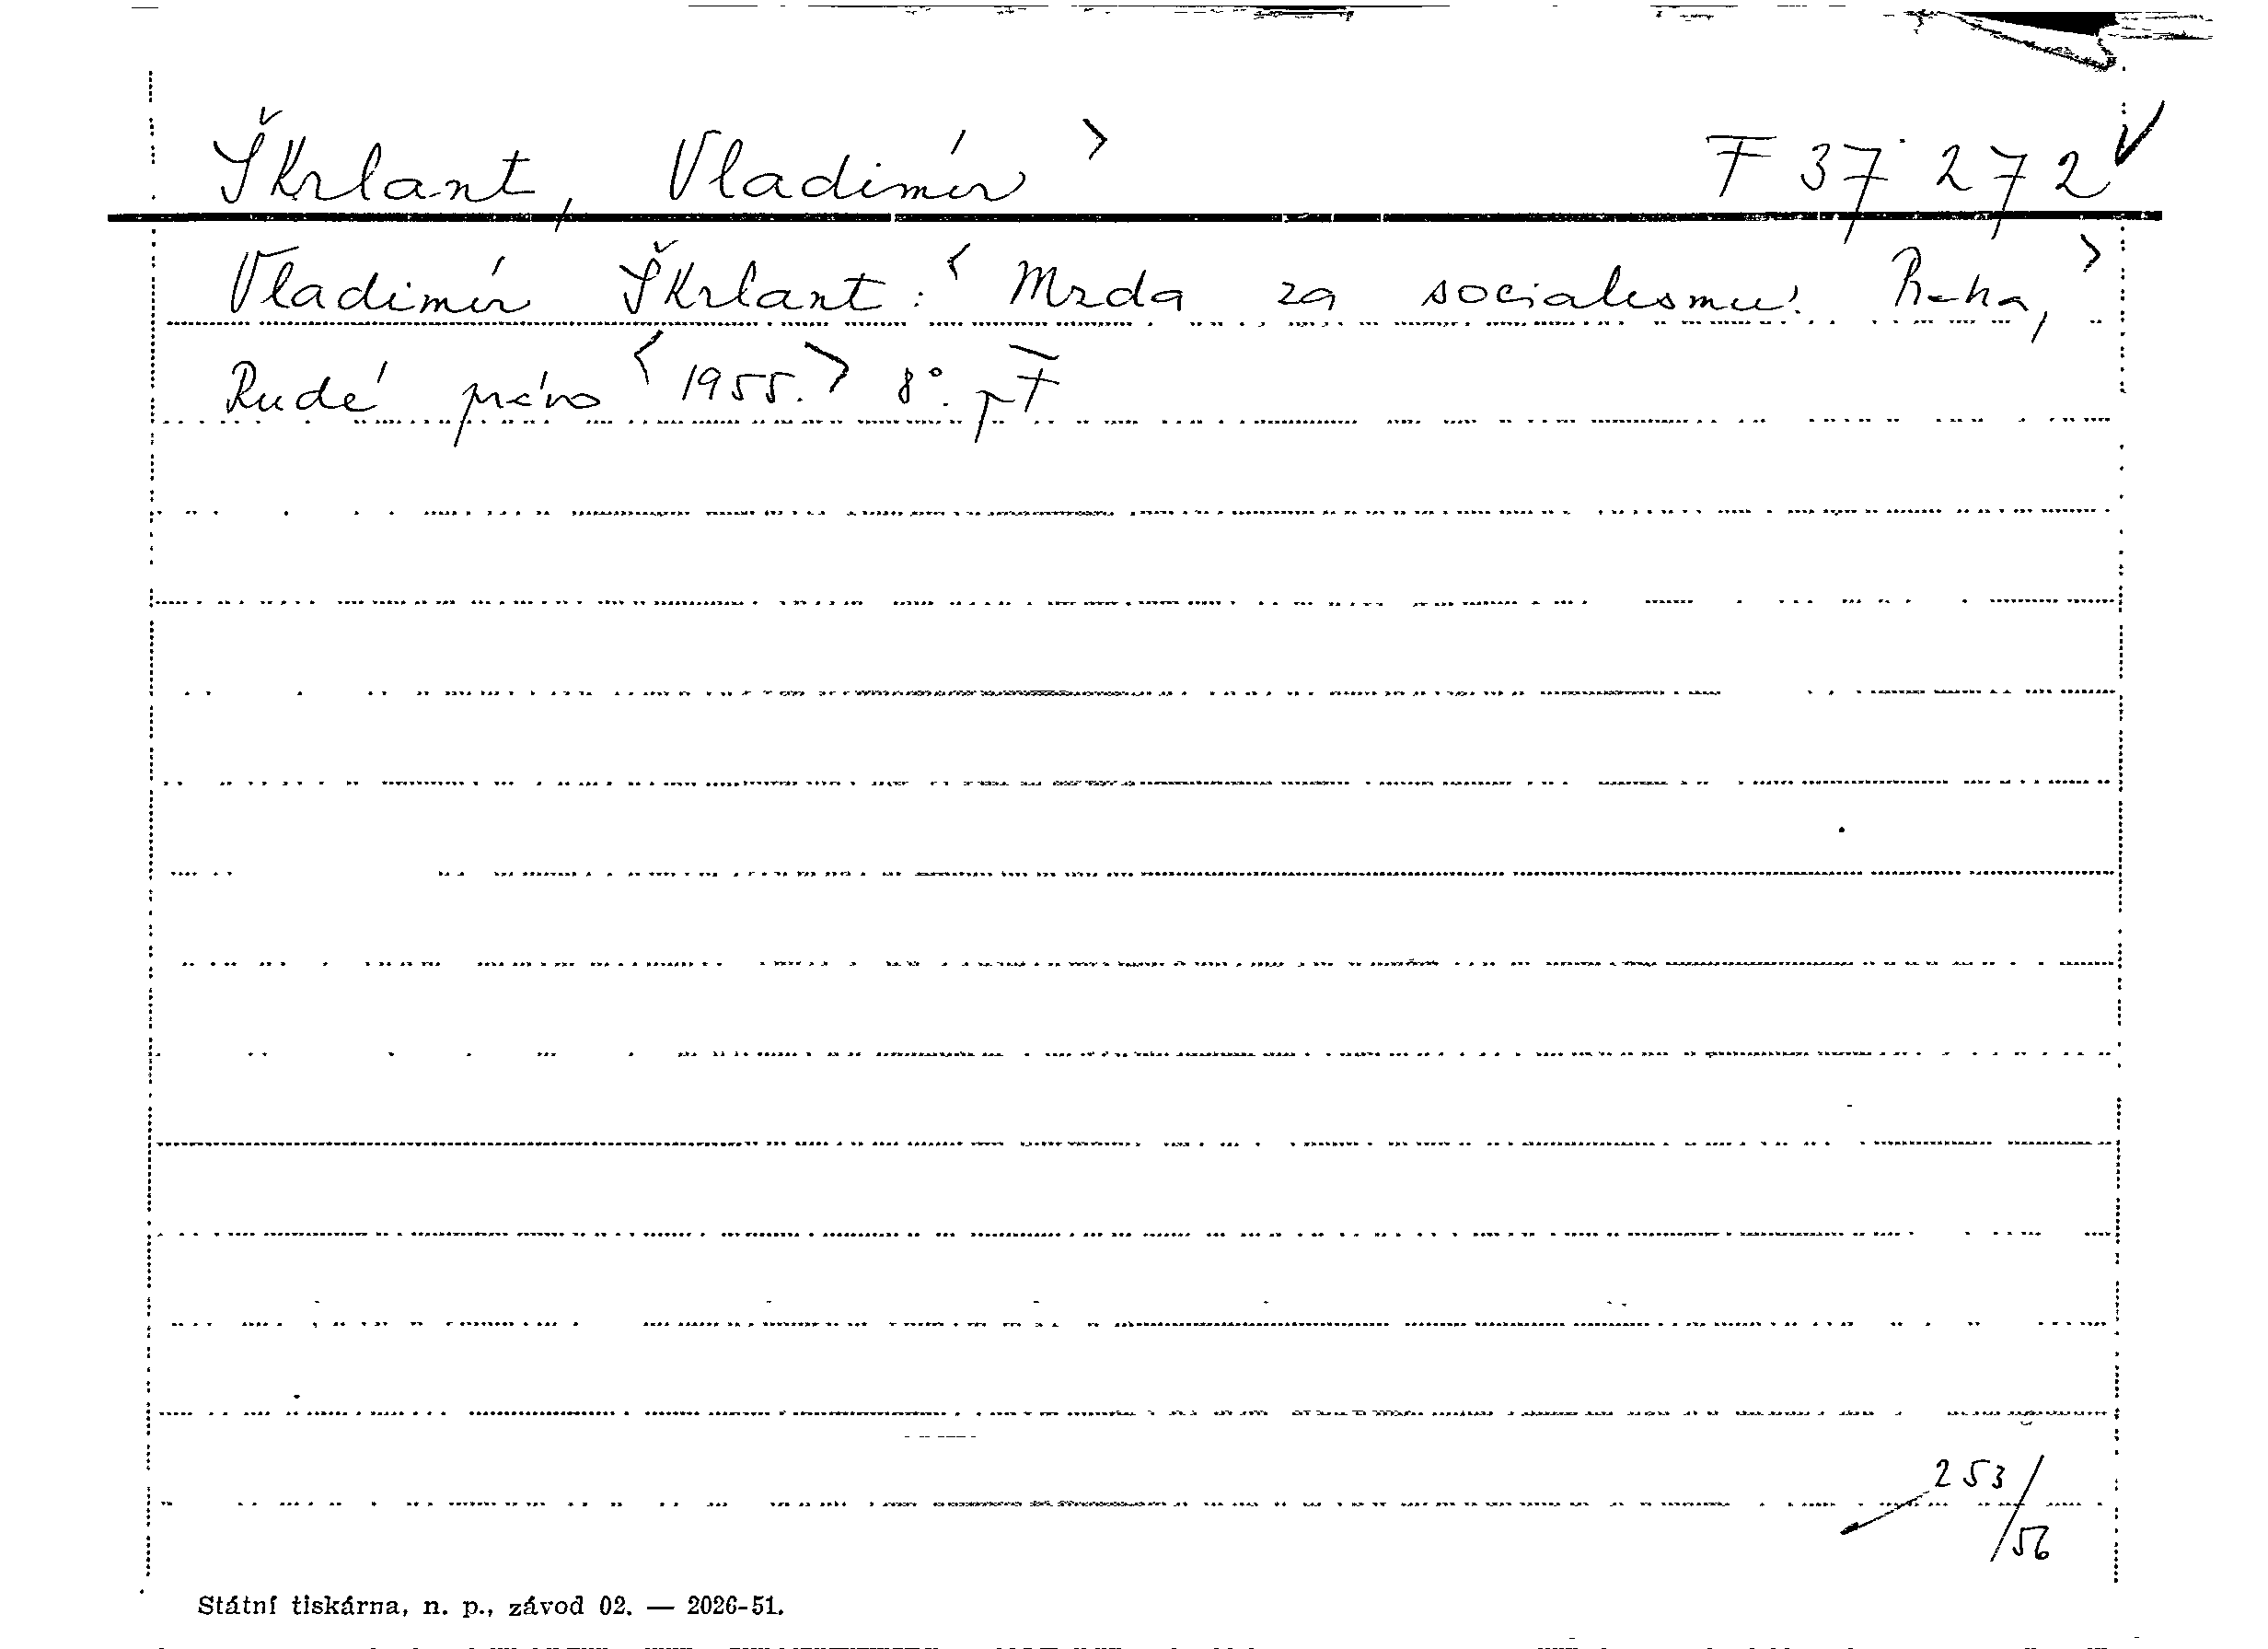 Škrlant, Vladimír > F 37 272 V
Vladimír Škrlant: < Mzda za socialismu. Praha, >
Rudé právo < 1955. > 8°. pF
253/56
Státní tiskárna, n. p., závod 02. — 2026-51.